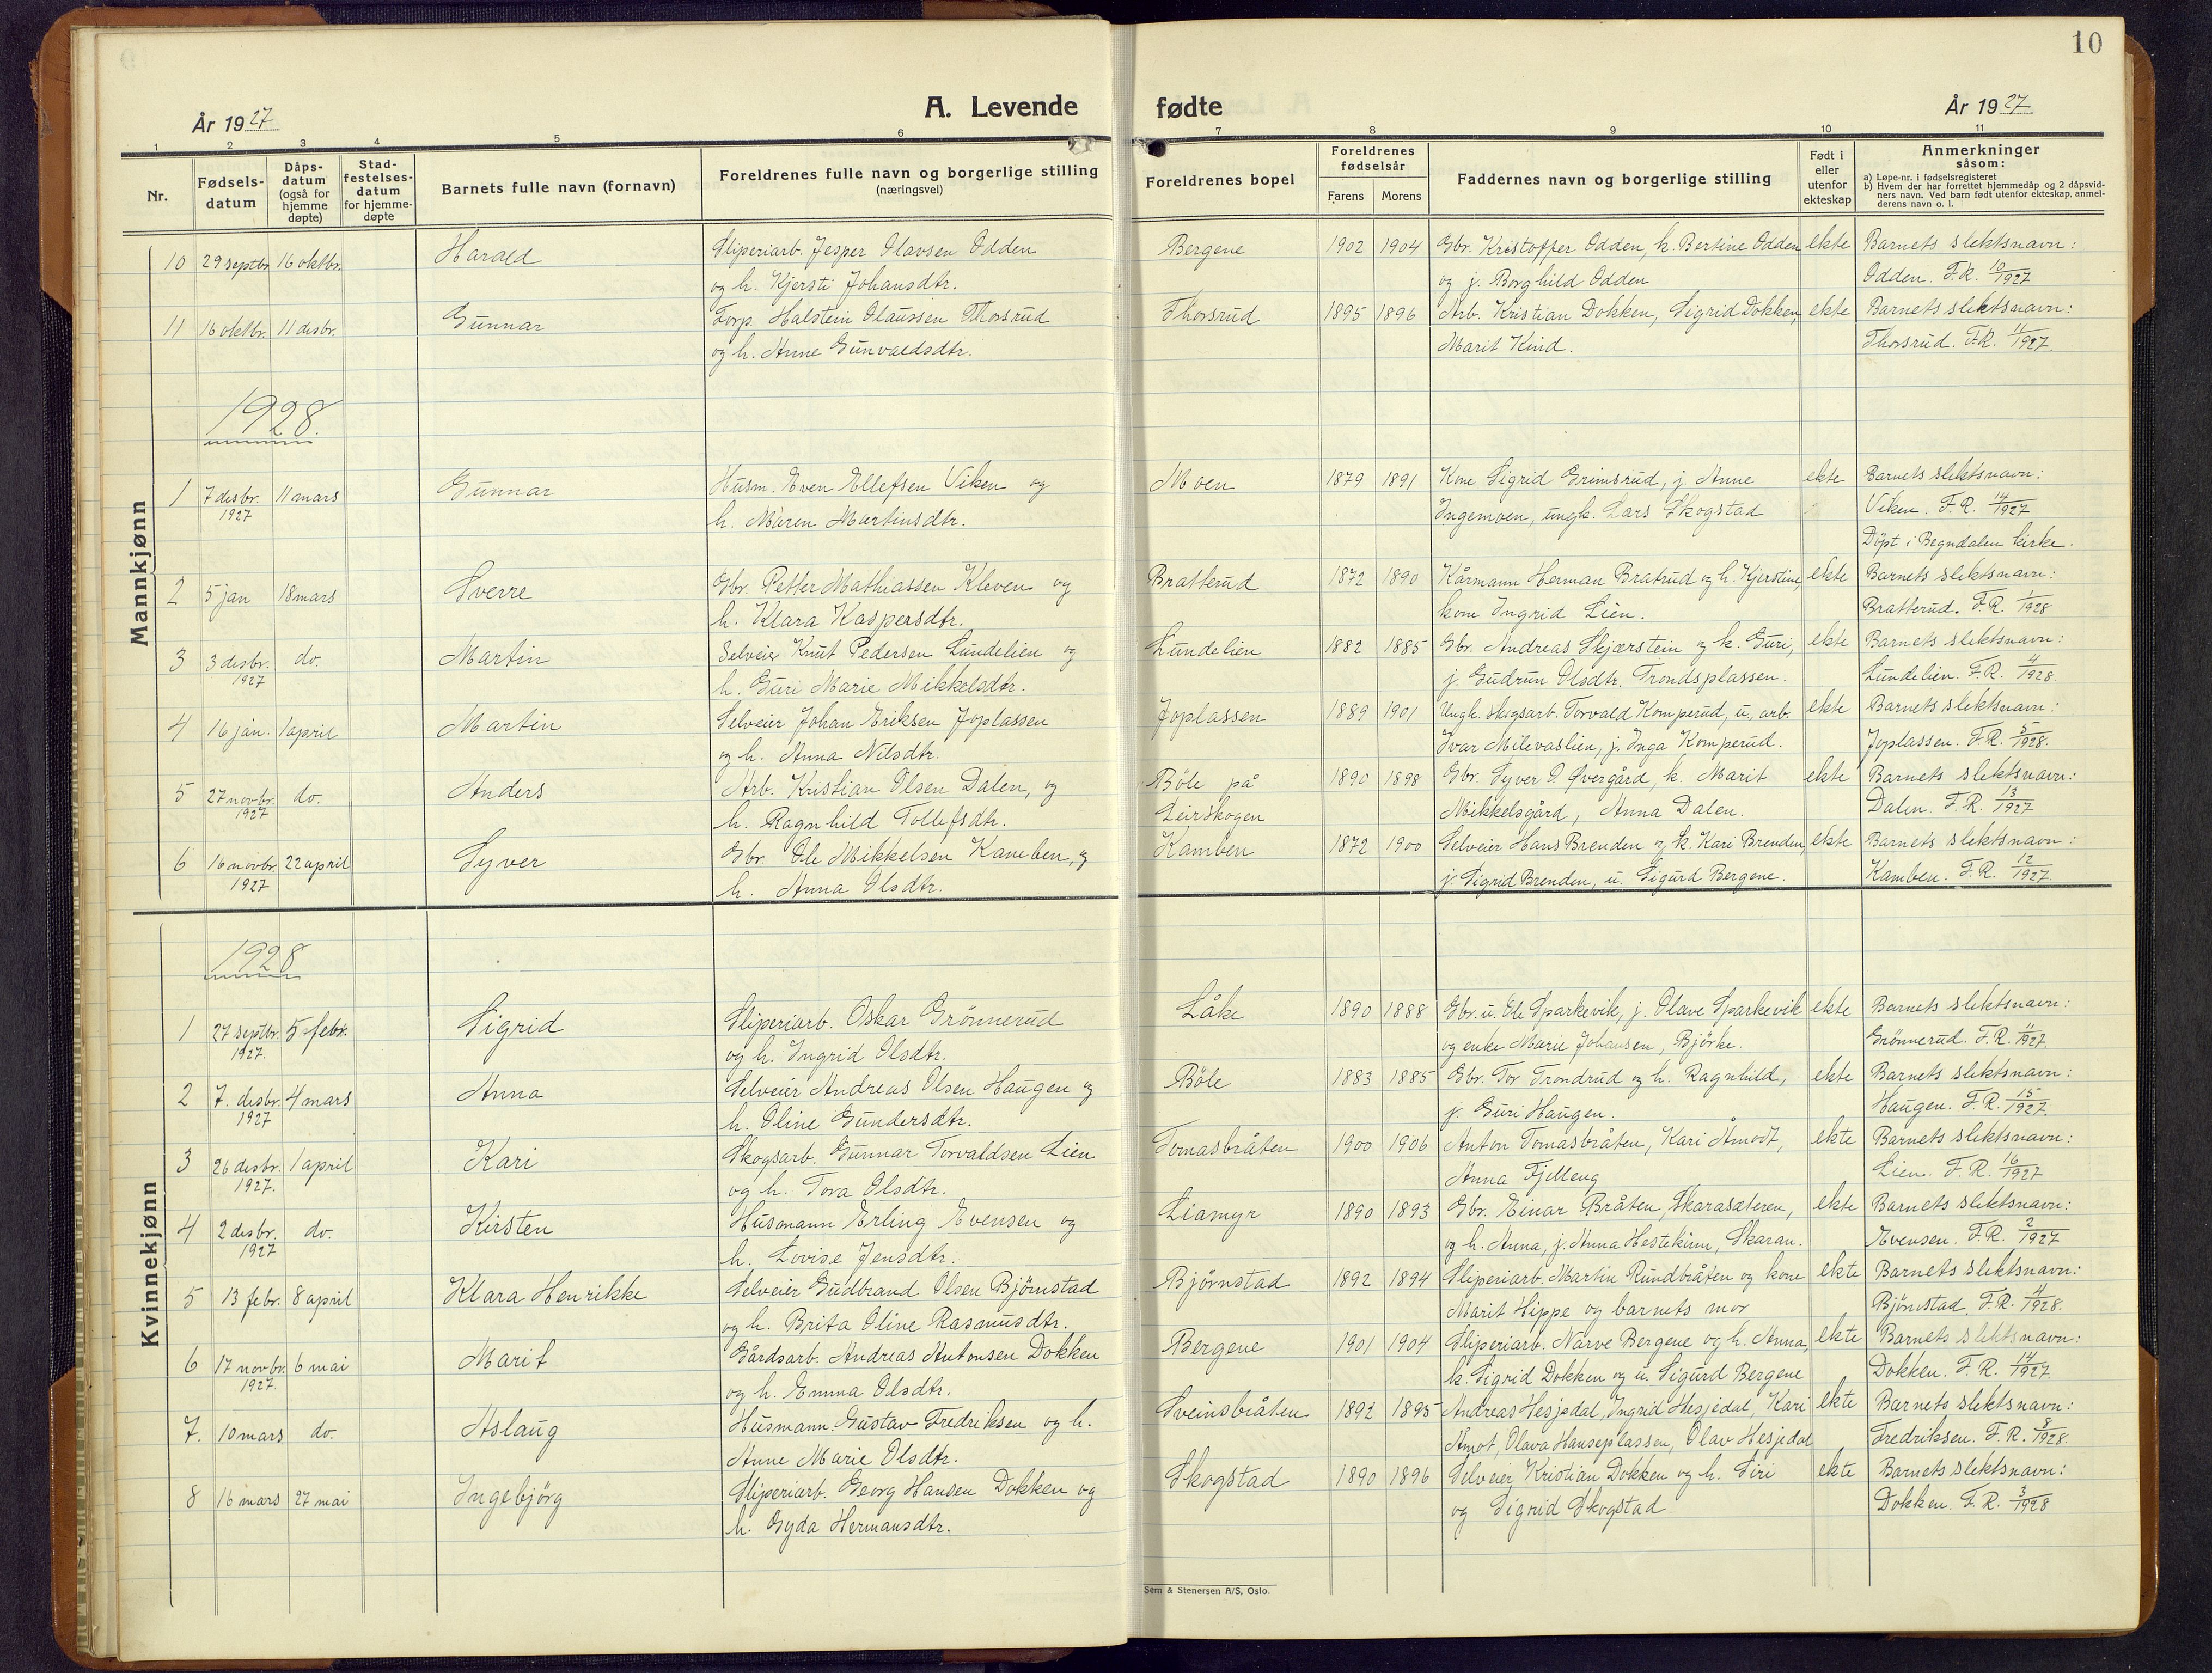 10
A. Levende fødte
År 1927
År 1927
1 2 3 4 5 6 7 8 9 10 11
Nr.
Fødsels-datum
Dåps-datum (også for hjemme døpte)
Stad-festelses-datum for hjemme-døpte
Barnets fulle navn (fornavn)
Foreldrenes fulle navn og borgerlige stilling
(næringsvei)
Foreldrenes bopel
Foreldrenes fødselsår
Farens Morens
Faddernes navn og borgerlige stilling
Født i eller utenfor ekteskap
Anmerkninger
såsom:
a) Løpe-nr. i fødselsregisteret
b) Hvem der har forrettet hjemmedåp og 2 dåpsvid-
ners navn. Ved barn født utenfor ekteskap, anmel-
derens navn o. l.
Mannkjønn
10 29 septbr. 16 oktbr. Harald Sliperiarb. Jesper Olavsen Odden Bergene 1902 1904 Gbr. Kristoffer Odden, k. Bertine Odden ekte Barnets slektsnavn:
og h. Kjersti Johansdtr. og j. Borghild Odden Odden. F.R. 10/1927
11 16 oktbr. 11 desbr. Gunnar Torp. Halstein Olaussen Thorsrud Thorsrud 1895 1896 Arb. Kristian Dokken, Sigrid Dokken, ekte Barnets slektsnavn:
og h. Anne Gunvaldsdtr. Marit Kind. Thorsrud. F.R. 11/1927.
1928.
1 7 desbr. 11 mars Gunnar Husm. Even Ellefsen Viken og Moen 1879 1891 Kone Sigrid Grimsrud, j. Anne ekte Barnets slektsnavn:
1927 h. Maren Martinsdtr. Ingemoen, ungk. Lars Skogstad Viken. F.R. 14/1927
Döpt i Begndalen kirke.
2 5 jan 18 mars Sverre Gbr. Petter Mathiassen Kleven og Bratterud 1872 1890 Kårmann Herman Bratrud og h. Kjerstine, ekte Barnets slektsnavn:
h. Klara Kaspersdtr. kone Ingrid Lien. Bratterud. F.R. 1/1928
3 3 desbr. do. Martin Selveier Knut Pedersen Lundelien og Lundelien 1882 1885 Gbr. Andreas Skjærstein og k. Guri, ekte Barnets slektsnavn:
1927 h. Guri Marie Mikkelsdtr. j. Gudrun Olsdtr. Trondsplassen. Lundelien. F.R. 4/1928.
4 16 jan. 1 april Martin Selveier Johan Eriksen Joplassen Joplassen 1889 1901 Ungk. skogsarb. Torvald Komperud, u. arb. ekte Barnets slektsnavn:
og h. Anna Nilsdtr. Ivar Milevaslien, j. Inga Komperud. Joplassen. F.R. 5/1928.
5 27 novbr. do. Anders Arb. Kristian Olsen Dalen, og Böle på 1890 1898 Gbr. Syver O Øvergård, k. Marit ekte Barnets slektsnavn:
1927 h. Ragnhild Tollefsdtr. Leirskogen Mikkelsgård, Anna Dalen. Dalen. F.R. 13/1927
6 16 novbr. 22 april Syver Gbr. Ole Mikkelsen Kamben, og Kamben 1872 1900 Selveier Hans Brenden og k. Kari Brenden, ekte Barnets slektsnavn:
1927 h. Anna Olsdtr. j. Sigrid Brenden, u. Sigurd Bergene. Kamben. F.R. 12/1927
Kvinnekjønn
1928
1 27 septbr. 5 febr. Sigrid Sliperiarb. Oskar Grönnerud Låke 1890 1888 Gbr. u. Ole Sparkevik, j. Olave Sparkevik ekte Barnets slektsnavn:
1927. og h. Ingrid Olsdtr. og enke Marie Johansen, Björke. Grönnerud. F.R. 11/1927.
2 7. desbr. 4 mars Anna Selveier Andreas Olsen Haugen og Böle 1883 1885 Gbr. Tor Trondrud og h. Ragnhild, ekte Barnets slektsnavn:
1927 h. Oline Gundersdtr. j. Guri Haugen. Haugen. F.R. 15/1927.
3 26 desbr. 1 april Kari Skogsarb. Gunnar Torvaldsen Lien Tomasbråten 1900 1906 Anton Tomasbråten, Kari Åmodt, ekte Barnets slektsnavn:
1927. og h. Tora Olsdtr. Anna Fjelleng Lien. F.R. 16/1927
4 2 desbr. do. Kirsten Husmann Erling Evensen og Liamyr 1890 1893 Gbr. Einar Bråten, Skarasæteren, ekte Barnets slektsnavn:
1927 h. Lovise Jensdtr. og h. Anna, j. Anna Hestekinn, Skaran. Evensen. F.R. 2/1927
5 13 febr. 8 april Klara Henrikke Selveier Gudbrand Olsen Bjömstad Bjørnstad 1892 1894 Sliperiarb. Martin Rundbråten og kone ekte Barnets slektsnavn:
og h. Brita Oline Rasmusdtr. Marit Hippe og barnets mor Björnstad. F.R. 4/1928.
6 17 novbr. 6 mai Marit Gårdsarb. Andreas Antonsen Dokken Bergene 1901 1904 Sliperiarb. Narve Bergene og h. Anna, ekte Barnets slektsnavn:
1927. og h. Emma Olsdtr. k. Sigrid Dokken og u. Sigurd Bergene Dokken. F.R. 14/1927.
7. 10 mars do. Aslaug Husmann Gustav Fredriksen og h. Sveinsbråten 1892 1895 Andreas Hesjedal, Ingrid Hesjedal, Kari ekte Barnets slektsnavn:
Anne Marie Olsdtr. Åmot, Olava Hanseplassen, Olav Hesjedal Fredriksen. F.R. 8/1928.
8 16 mars 27 mai Ingebjörg Sliperiarb. Georg Hansen Dokken og Skogstad 1890 1896 Selveier Kristian Dokken og h. Siri ekte Barnets slektsnavn:
h. Gyda Hermansdtr. og Sigrid Skogstad Dokken. F.R. 3/1928
Sem & Stenersen A/S, Oslo.